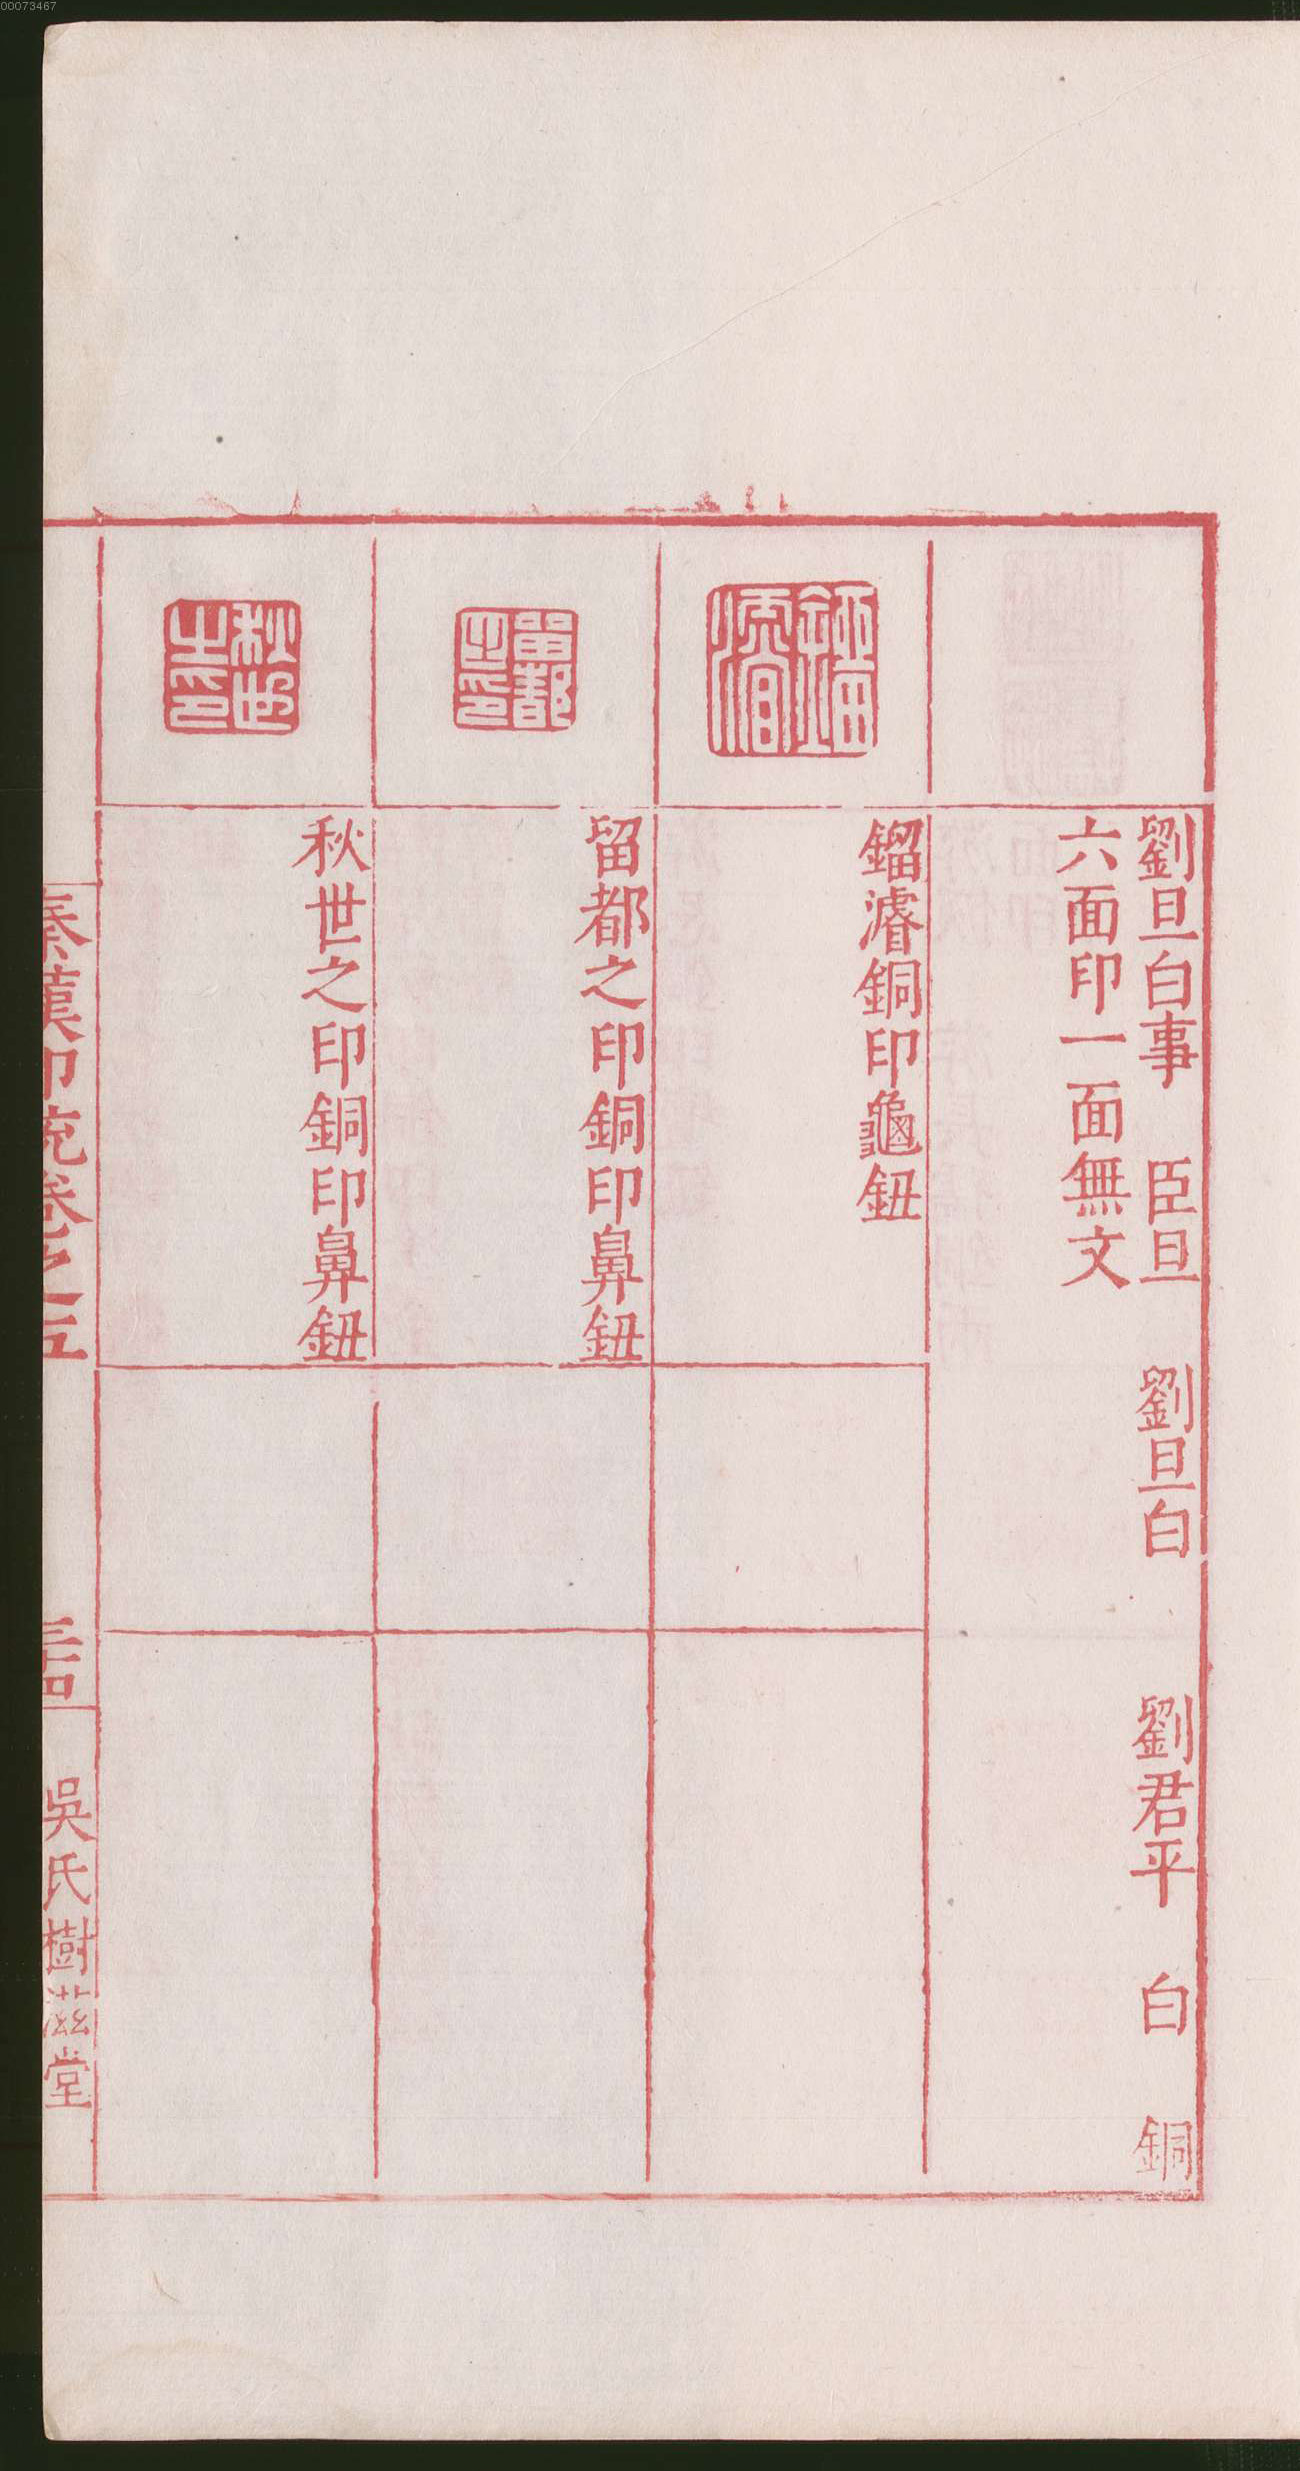 00073467
劉旦白事 臣旦 劉旦白 劉君平 白 銅
六面印一面無文
鎦濬銅印龜鈕
留都之印銅印鼻鈕
秋世之印銅印鼻鈕
留都之印
秋世之印
秦漢印統卷之五
吳氏樹滋堂